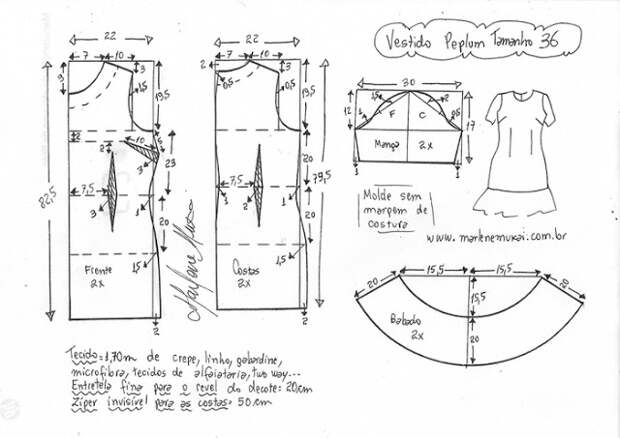 Vestido Peplum Tamanho 36
22
7
10
9
3
1,5
19,5
2
10
6
2
3
23
7,5
3
1
82,5
20
1,5
Frente
2x
2
22
7
10
2
0,5
3
0,5
19,5
20
7,5
1
3
1
79,5
20
1,5
Costas
2x
2
Marlene Mukai
30
12
1,5
2
1
F
C
0,5
17
Manga
2x
1
1
Molde sem
margem de
costura
www.marlenemukai.com.br
20
15,5
15,5
20
15,5
Babado
2x
20
Tecido=1,70m de crepe, linho, gabardine,
microfibra, tecidos de alfaiataria, two way...
Entretela fina para o revel do decote: 20cm
Zíper invisível para as costas= 50cm